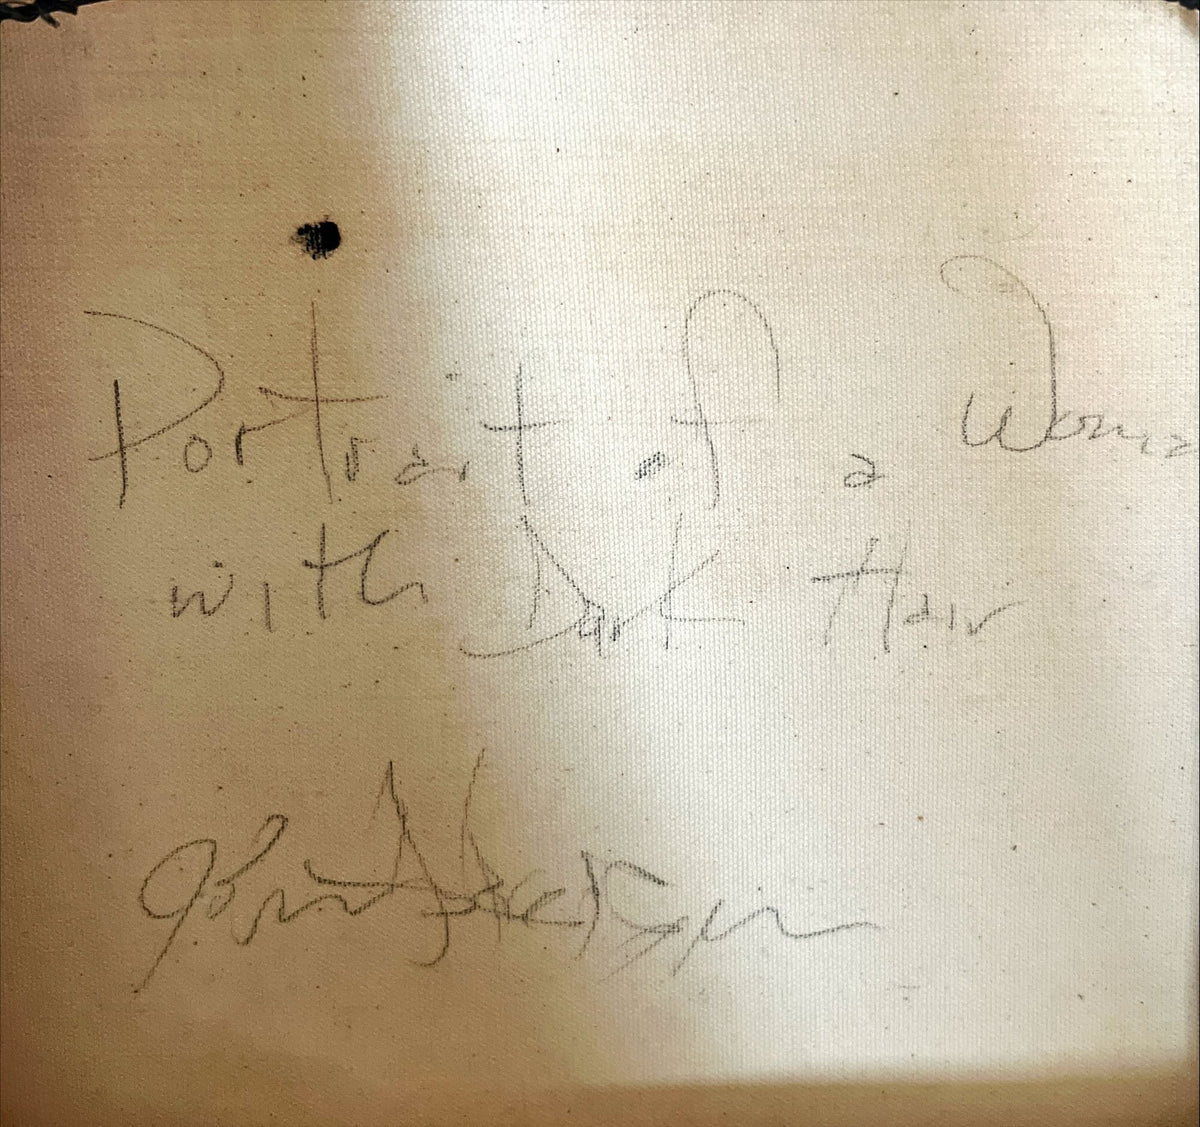 Portrait of a Woma
with Dark Hair
John